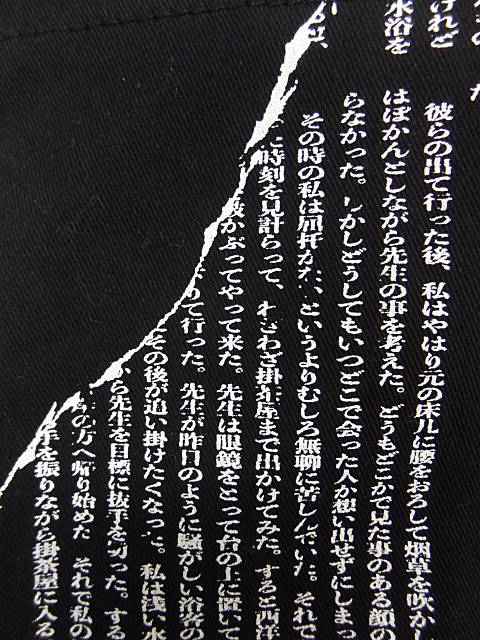 けれど
水浴を
彼らの出て行った後、私はやはり元の床几に腰をおろして烟草を吹か
はぽかんとしながら先生の事を考えた。どうもどこかで見た事のある顔の
らなかった。しかしどうしてもいつどこで会った人か想い出せずにしま
その時の私は屈托がないというよりむしろ無聊に苦しんでいた。それで
に時刻を見計らって、わざわざ掛茶屋まで出かけてみた。すると西洋
かぶってやって来た。先生は眼鏡をとって台の上に置いて
りて行った。先生が昨日のように騒がしい浴客の
その後が追い掛けたくなった。私は浅い水
から先生を目標に抜手を切った。する
の方へ帰り始めた それで私の
手を振りながら掛茶屋に入る